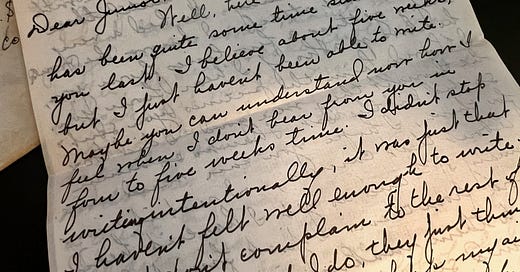 Dear Junior,
Well, here
has been quite some time since
you last, I believe about five weeks,
but I just haven't been able to write.
Maybe you can understand now how I
feel when I don't hear from you in
four to five weeks time. I didn't stop
writing intentionally, it was just that
I haven't felt well enough to write.
complain to the rest of
I do, they just think
my